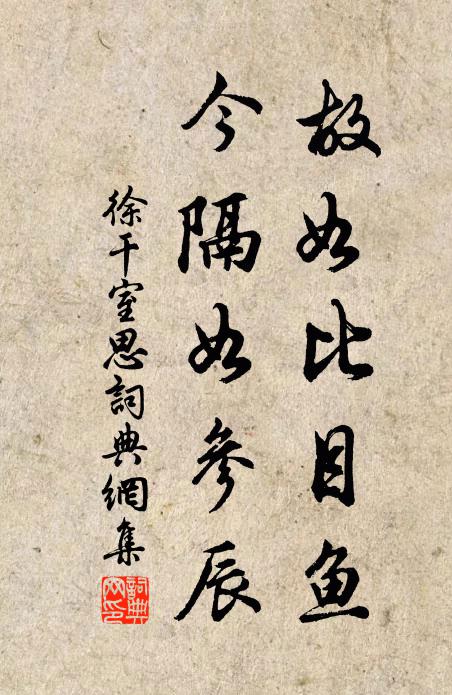 故如比目鱼
今隔如參辰
徐干室思詞典網集
詞典网印